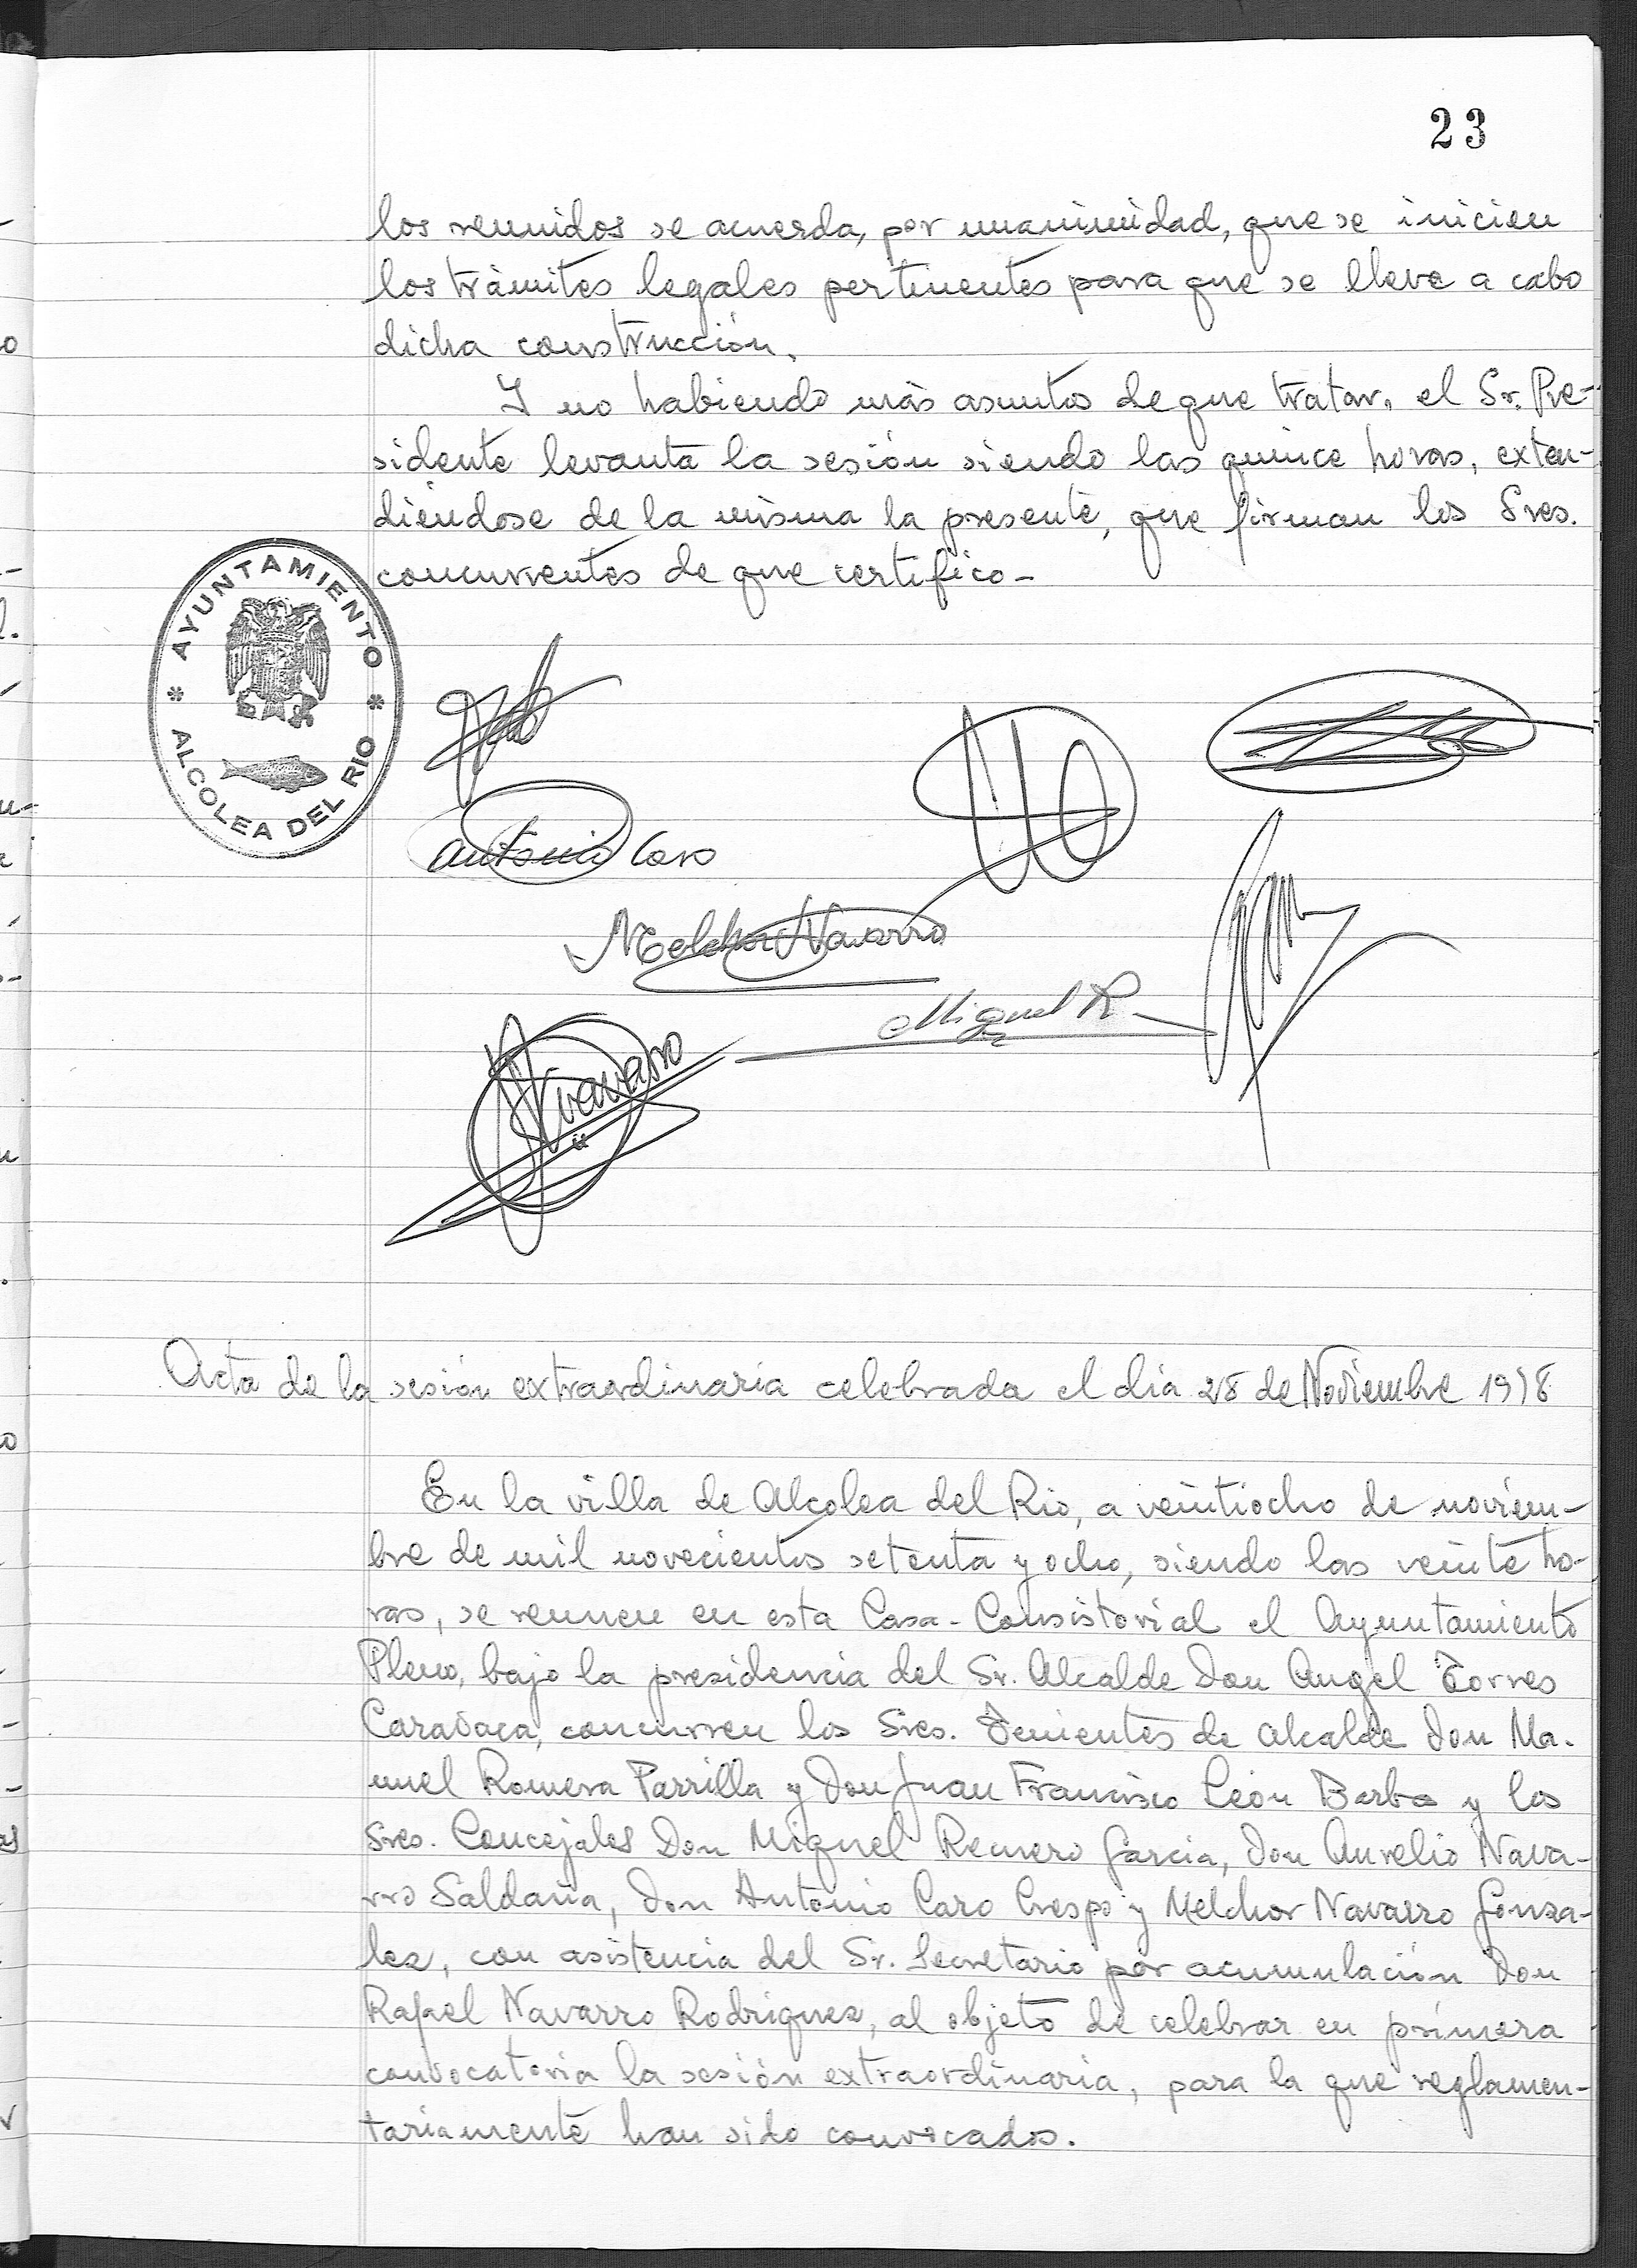 23
los reunidos se acuerda, por unanimidad, que se inicien
los trámites legales pertinentes para que se lleve a cabo
dicha construcción.
Y no habiendo más asuntos de que tratar, el Sr. Pre-
sidente levanta la sesión siendo las quince horas, exten-
diéndose de la misma la presente, que firman los Sres.
concurrentes de que certifico-
AYUNTAMIENTO
* ALCOLEA DEL RIO *
Antonio Caro
Melchor Navarro
Miguel R.
Navarro
Acta de la sesión extraordinaria celebrada el día 28 de Noviembre 1978
En la villa de Alcolea del Rio, a veintiocho de noviem-
bre de mil novecientos setenta y ocho, siendo las veinte ho-
ras, se reunen en esta Casa-Consistorial el Ayuntamiento
Pleno, bajo la presidencia del Sr. Alcalde Don Angel Torres
Caravaca, concurren los Sres. Tenientes de Alcalde Don Ma-
nuel Romera Parrilla y Don Juan Francisco León Barba y los
Sres. Concejales Don Miguel Romero García, Don Aurelio Nava-
rro Saldaña, Don Antonio Caro Crespo y Melchor Navarro Gonza-
lez, con asistencia del Sr. Secretario por acumulación Don
Rafael Navarro Rodriguez, al objeto de celebrar en primera
convocatoria la sesión extraordinaria, para la que reglamen-
tariamente han sido convocados.